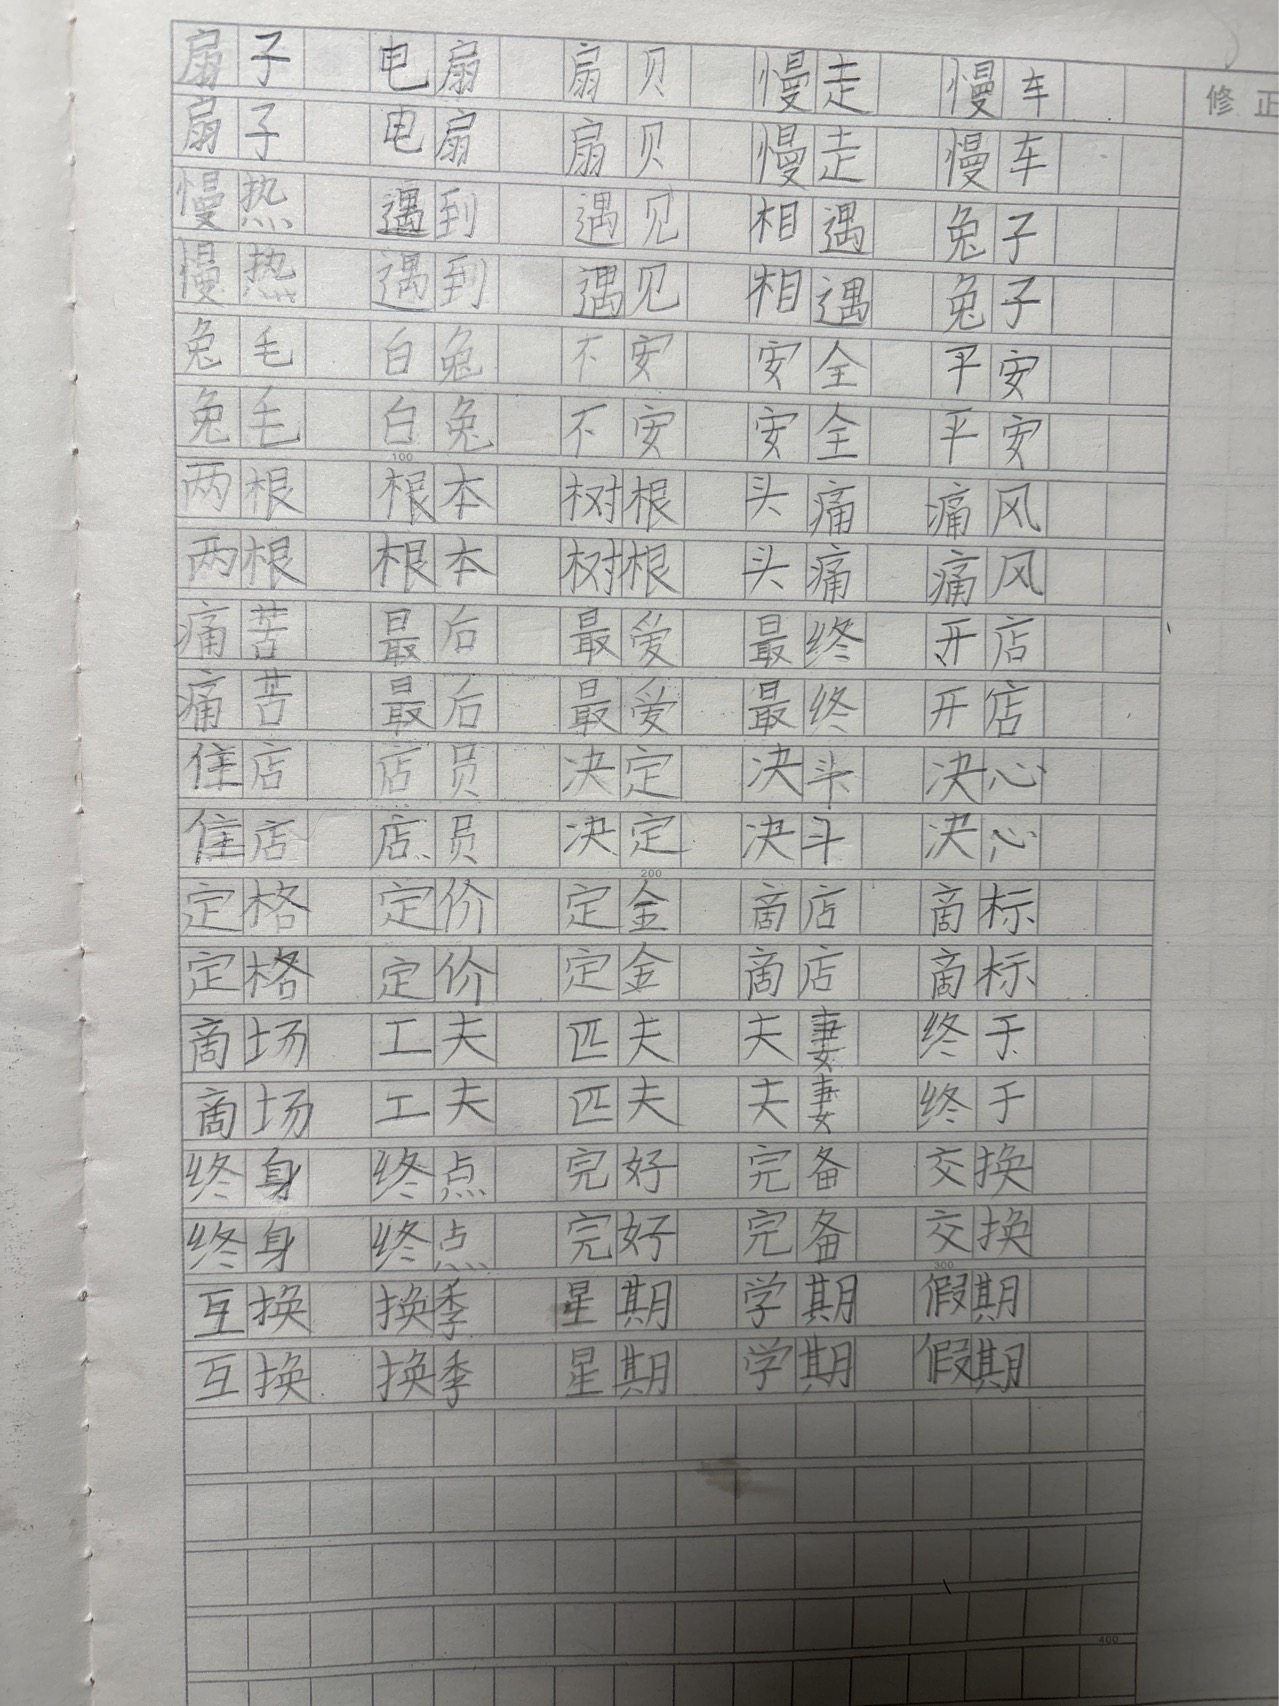 扇子 电扇 扇贝 慢走 慢车
修正
扇子 电扇 扇贝 慢走 慢车
慢热 遇到 遇见 相遇 兔子
慢热 遇到 遇见 相遇 兔子
兔毛 白兔 不安 安全 平安
兔毛 白兔 不安 安全 平安
100
两根 根本 树根 头痛 痛风
两根 根本 树根 头痛 痛风
痛苦 最后 最爱 最终 开店
痛苦 最后 最爱 最终 开店
住店 店员 决定 决斗 决心
住店 店员 决定 决斗 决心
200
定格 定价 定金 商店 商标
定格 定价 定金 商店 商标
商场 工夫 匹夫 夫妻 终于
商场 工夫 匹夫 夫妻 终于
终身 终点 完好 完备 交换
终身 终点 完好 完备 交换
300
互换 换季 星期 学期 假期
互换 换季 星期 学期 假期
400